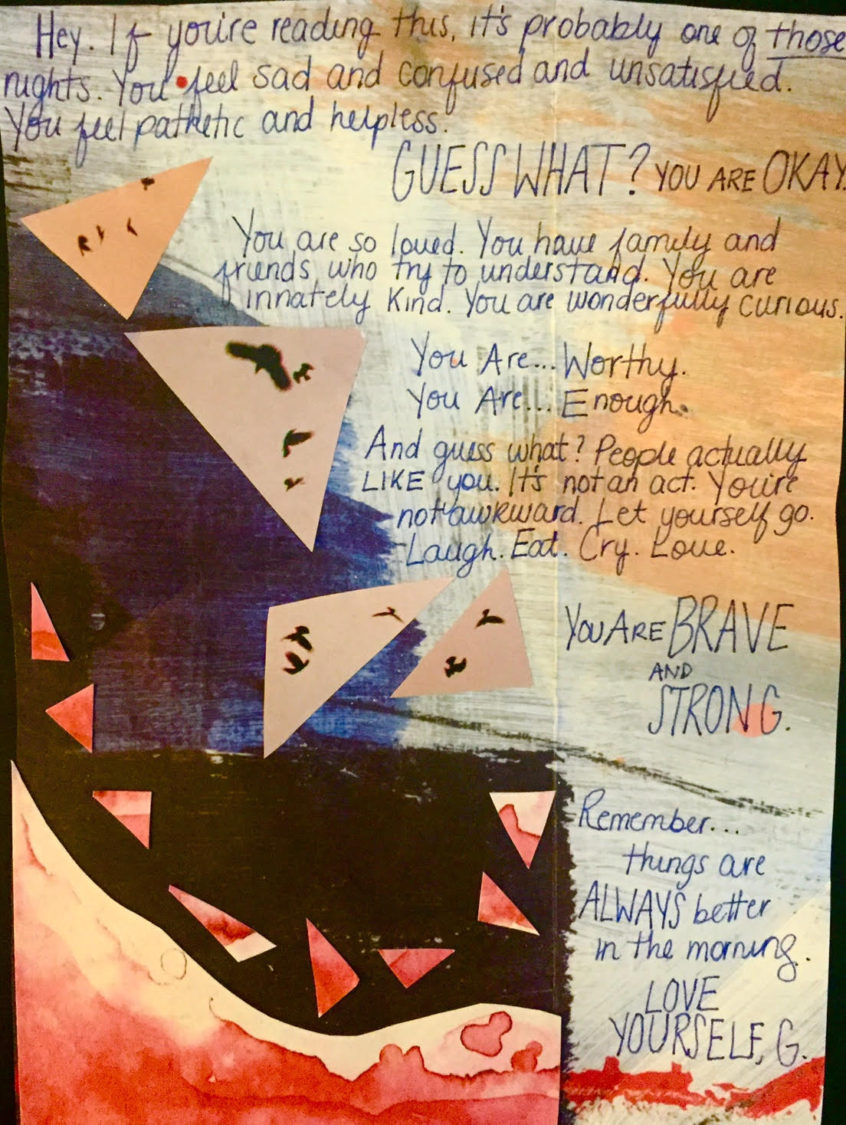 Hey. If you're reading this, it's probably one of those
nights. You feel sad and confused and unsatisfied.
You feel pathetic and helpless.
GUESS WHAT? YOU ARE OKAY.
You are so loved. You have family and
friends who try to understand. You are
innately kind. You are wonderfully curious.
You Are... Worthy.
You Are... Enough.
And guess what? People actually
LIKE you. It's not an act. You're
not awkward. Let yourself go.
Laugh. Eat. Cry. Love.
YOU ARE BRAVE
AND
STRONG.
Remember...
things are
ALWAYS better
in the morning.
LOVE
YOURSELF, G.